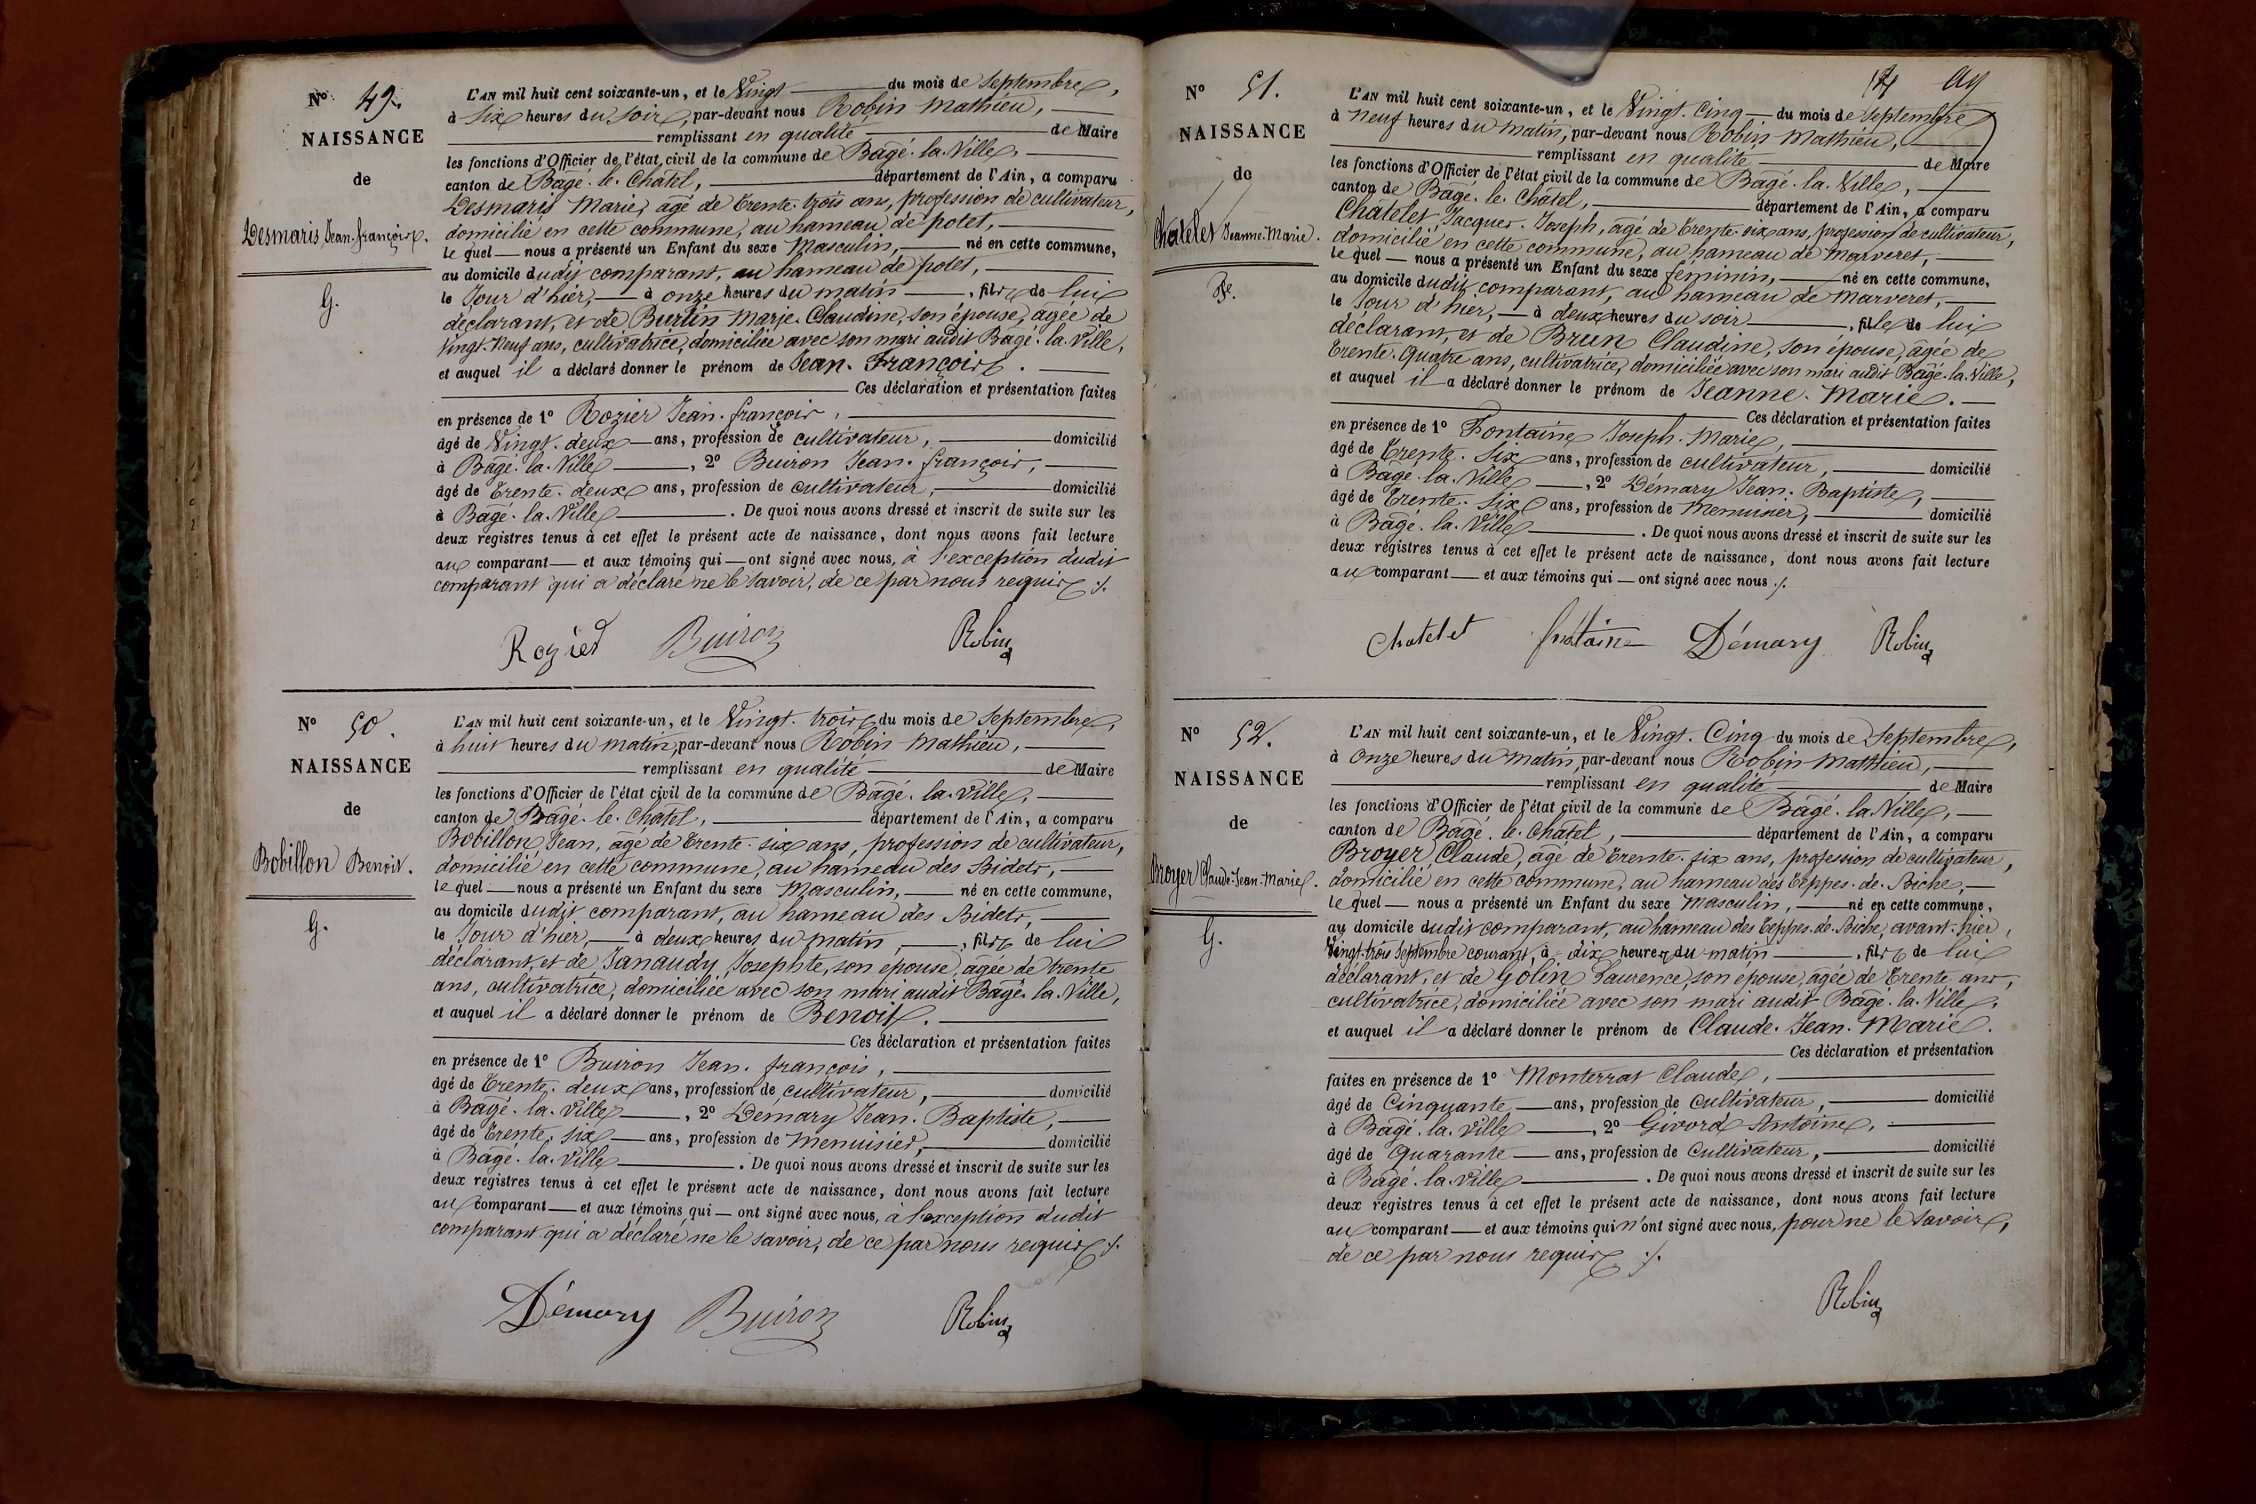 N° 49.
NAISSANCE
de
Desmaris Jean-françois.
G.
L'AN mil huit cent soixante-un, et le Vingt du mois de Septembre,
à six heures du soir, par-devant nous Robin Mathieu,
remplissant en qualité de Maire
les fonctions d'Officier de l'état civil de la commune de Bâgé-la-Ville,
canton de Bâgé-le-Châtel, département de l'Ain, a comparu
Desmaris Marie, âgé de trente-trois ans, profession de cultivateur,
domicilié en cette commune, au hameau de potet,
lequel nous a présenté un Enfant du sexe Masculin, né en cette commune,
au domicile dudit comparant, au hameau de potet,
le Jour d'hier, à onze heures du matin, fils de lui
déclarant, et de Burtin Marie-Claudine, son épouse, âgée de
Vingt-Neuf ans, cultivatrice, domiciliée avec son mari audit Bâgé-la-Ville,
et auquel il a déclaré donner le prénom de Jean-François.
Ces déclaration et présentation faites
en présence de 1° Rozier Jean-françois,
âgé de Vingt-deux ans, profession de cultivateur, domicilié
à Bâgé-la-Ville, 2° Buiron Jean-françois,
âgé de Trente-deux ans, profession de cultivateur, domicilié
à Bâgé-la-Ville. De quoi nous avons dressé et inscrit de suite sur les
deux registres tenus à cet effet le présent acte de naissance, dont nous avons fait lecture
au comparant et aux témoins qui ont signé avec nous, à l'exception dudit
comparant qui a déclaré ne le savoir, de ce par nous requis ./.
Rozier Buiron Robin
N° 50.
NAISSANCE
de
Bobillon Benoit.
G.
L'AN mil huit cent soixante-un, et le Vingt-trois du mois de Septembre,
à huit heures du matin, par-devant nous Robin Mathieu,
remplissant en qualité de Maire
les fonctions d'Officier de l'état civil de la commune de Bâgé-la-Ville,
canton de Bâgé-le-Châtel, département de l'Ain, a comparu
Bobillon Jean, âgé de trente-six ans, profession de cultivateur,
domicilié en cette commune, au hameau des Bidets,
lequel nous a présenté un Enfant du sexe Masculin, né en cette commune,
au domicile dudit comparant, au hameau des Bidets,
le Jour d'hier, à deux heures du matin, fils de lui
déclarant, et de Janaudy Josephte, son épouse, âgée de trente
ans, cultivatrice, domiciliée avec son mari audit Bâgé-la-Ville,
et auquel il a déclaré donner le prénom de Benoit.
Ces déclaration et présentation faites
en présence de 1° Buiron Jean-françois,
âgé de Trente-deux ans, profession de cultivateur, domicilié
à Bâgé-la-Ville, 2° Démary Jean-Baptiste,
âgé de Trente-six ans, profession de Menuisier, domicilié
à Bâgé-la-Ville. De quoi nous avons dressé et inscrit de suite sur les
deux registres tenus à cet effet le présent acte de naissance, dont nous avons fait lecture
au comparant et aux témoins qui ont signé avec nous, à l'exception dudit
comparant qui a déclaré ne le savoir, de ce par nous requis ./.
Démary Buiron Robin
N° 51.
NAISSANCE
de
Châtelet Jeanne-Marie.
L'AN mil huit cent soixante-un, et le Vingt-Cinq du mois de Septembre
à Neuf heures du matin, par-devant nous Robin Mathieu,
remplissant en qualité de Maire
les fonctions d'Officier de l'état civil de la commune de Bâgé-la-Ville,
canton de Bâgé-le-Châtel, département de l'Ain, a comparu
Châtelet Jacques-Joseph, âgé de trente-six ans, profession de cultivateur,
domicilié en cette commune, au hameau de Marveret,
lequel nous a présenté un Enfant du sexe féminin, né en cette commune,
au domicile dudit comparant, au hameau de Marveret,
le Jour d'hier, à deux heures du soir, fille de lui
déclarant, et de Brun Claudine, son épouse, âgée de
Trente-Quatre ans, cultivatrice, domiciliée avec son mari audit Bâgé-la-Ville,
et auquel il a déclaré donner le prénom de Jeanne-Marie.
Ces déclaration et présentation faites
en présence de 1° Fontaine Joseph-Marie,
âgé de Trente-six ans, profession de cultivateur, domicilié
à Bâgé-la-Ville, 2° Démary Jean-Baptiste,
âgé de Trente-six ans, profession de Menuisier, domicilié
à Bâgé-la-Ville. De quoi nous avons dressé et inscrit de suite sur les
deux registres tenus à cet effet le présent acte de naissance, dont nous avons fait lecture
au comparant et aux témoins qui ont signé avec nous ./.
Chatelet fontaine Démary Robin
N° 52.
NAISSANCE
de
Broyer Claude-Jean-Marie.
G.
L'AN mil huit cent soixante-un, et le Vingt-Cinq du mois de Septembre,
à Onze heures du matin, par-devant nous Robin Mathieu,
remplissant en qualité de Maire
les fonctions d'Officier de l'état civil de la commune de Bâgé-la-Ville,
canton de Bâgé-le-Châtel, département de l'Ain, a comparu
Broyer Claude, âgé de trente-six ans, profession de cultivateur,
domicilié en cette commune, au hameau des Teppes-de-Biche,
lequel nous a présenté un Enfant du sexe Masculin, né en cette commune,
au domicile dudit comparant, au hameau des Teppes-de-Biche, avant-hier,
Vingt-trois Septembre courant, à dix heures du matin, fils de lui
déclarant, et de Golin Laurence, son épouse, âgée de Trente ans,
cultivatrice, domiciliée avec son mari audit Bâgé-la-Ville,
et auquel il a déclaré donner le prénom de Claude-Jean-Marie.
Ces déclaration et présentation
faites en présence de 1° Monterrat Claude,
âgé de Cinquante ans, profession de Cultivateur, domicilié
à Bâgé-la-Ville, 2° Givord Antoine,
âgé de Quarante ans, profession de Cultivateur, domicilié
à Bâgé-la-Ville. De quoi nous avons dressé et inscrit de suite sur les
deux registres tenus à cet effet le présent acte de naissance, dont nous avons fait lecture
au comparant et aux témoins qui n'ont signé avec nous, pour ne le savoir,
de ce par nous requis ./.
Robin